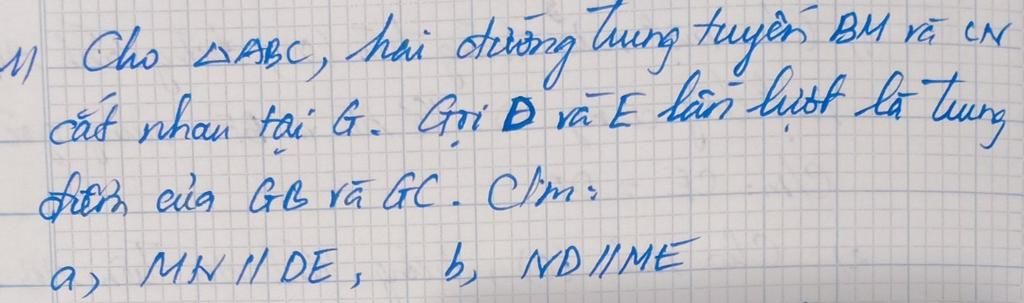 11) Cho △ABC, hai đường trung tuyến BM và CN
cắt nhau tại G. Gọi D và E lần lượt là trung
điểm của GB và GC. C/m:
a, MN // DE, b, ND // ME